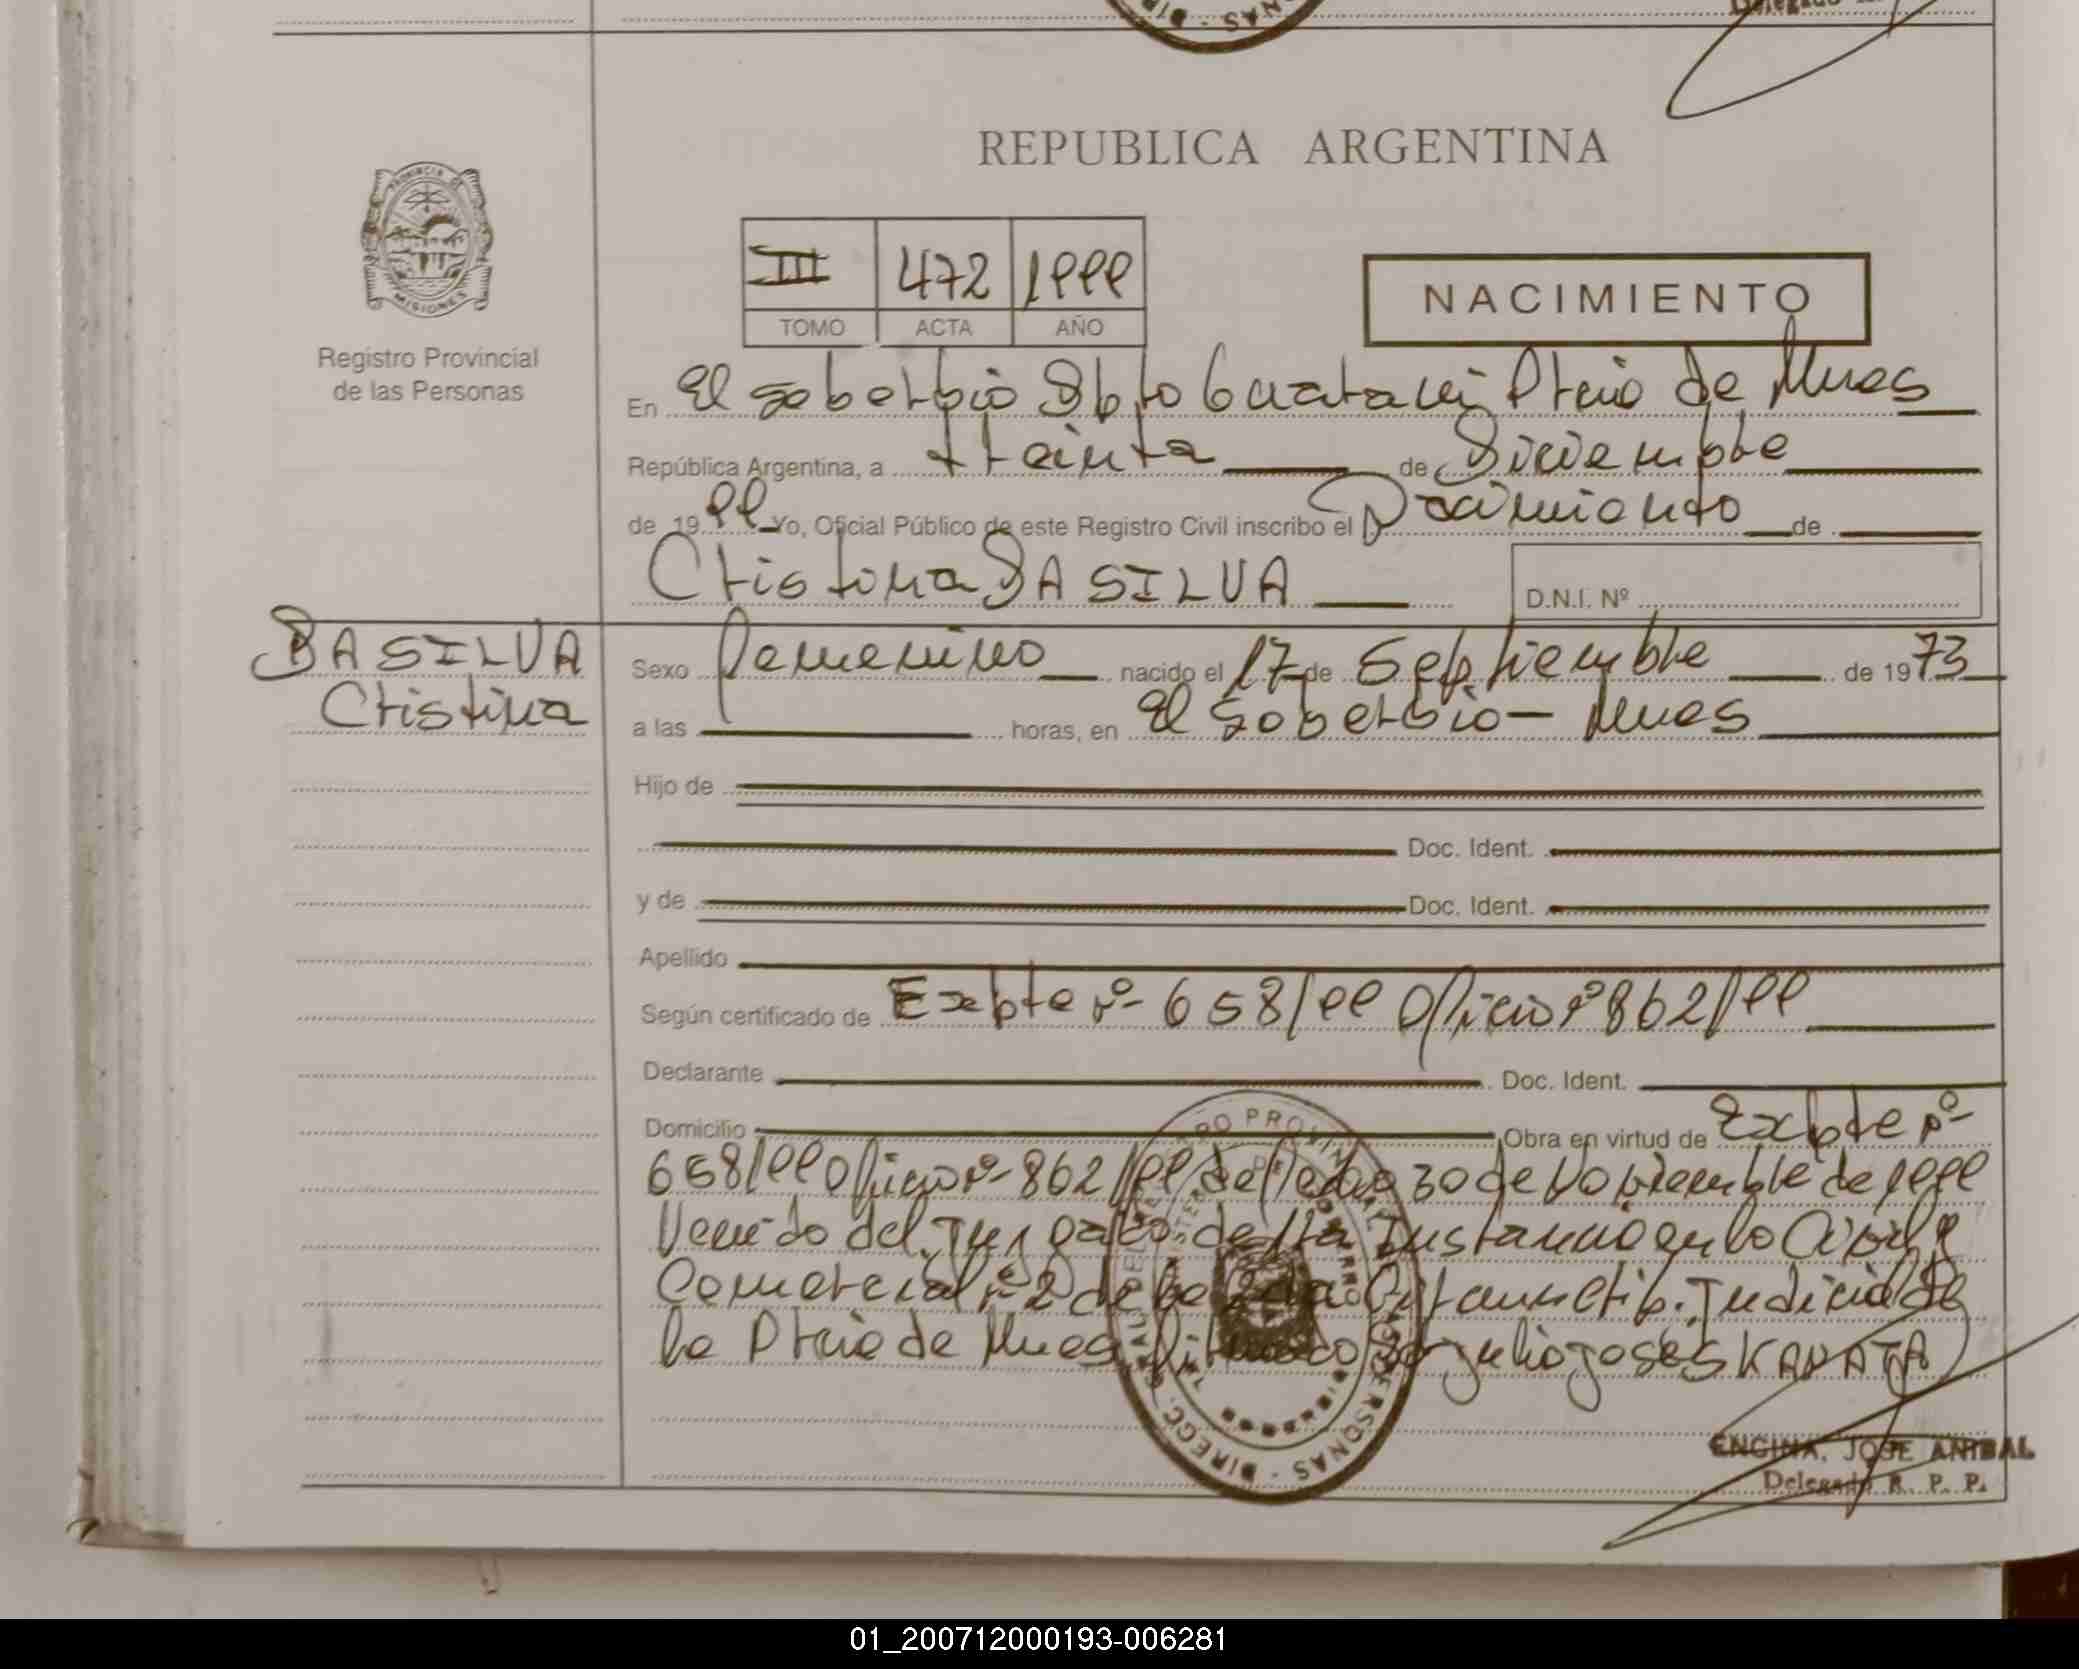 REPUBLICA ARGENTINA
PROVINCIA DE
MISIONES
Registro Provincial
de las Personas
III 472 1999
TOMO ACTA AÑO
NACIMIENTO
En El Soberbio Dpto Guaraní Pcia de Mnes
República Argentina, a treinta de Diciembre
de 1999 Yo, Oficial Público de este Registro Civil inscribo el Nacimiento de
Cristina DA SILVA D.N.I. Nº
DA SILVA
Cristina
Sexo Femenino nacido el 17 de Septiembre de 1973
a las horas, en El Soberbio - Mnes
Hijo de
Doc. Ident.
y de Doc. Ident.
Apellido
Según certificado de Expte nº 658/99 Oficio nº 862/99
Declarante Doc. Ident.
Domicilio Obra en virtud de Expte nº
658/99 Oficio nº 862/99 de fecha 30 de Noviembre de 1999
Venido del Juzgado de 1ra Instancia en lo Civil y
Comercial nº 2 de la 2da Circunscrip. Judicial de
la Pcia de Mnes Dr Julio José
ENCINA, JOSE ANIBAL
Delegado R. P. P.
01_200712000193-006281